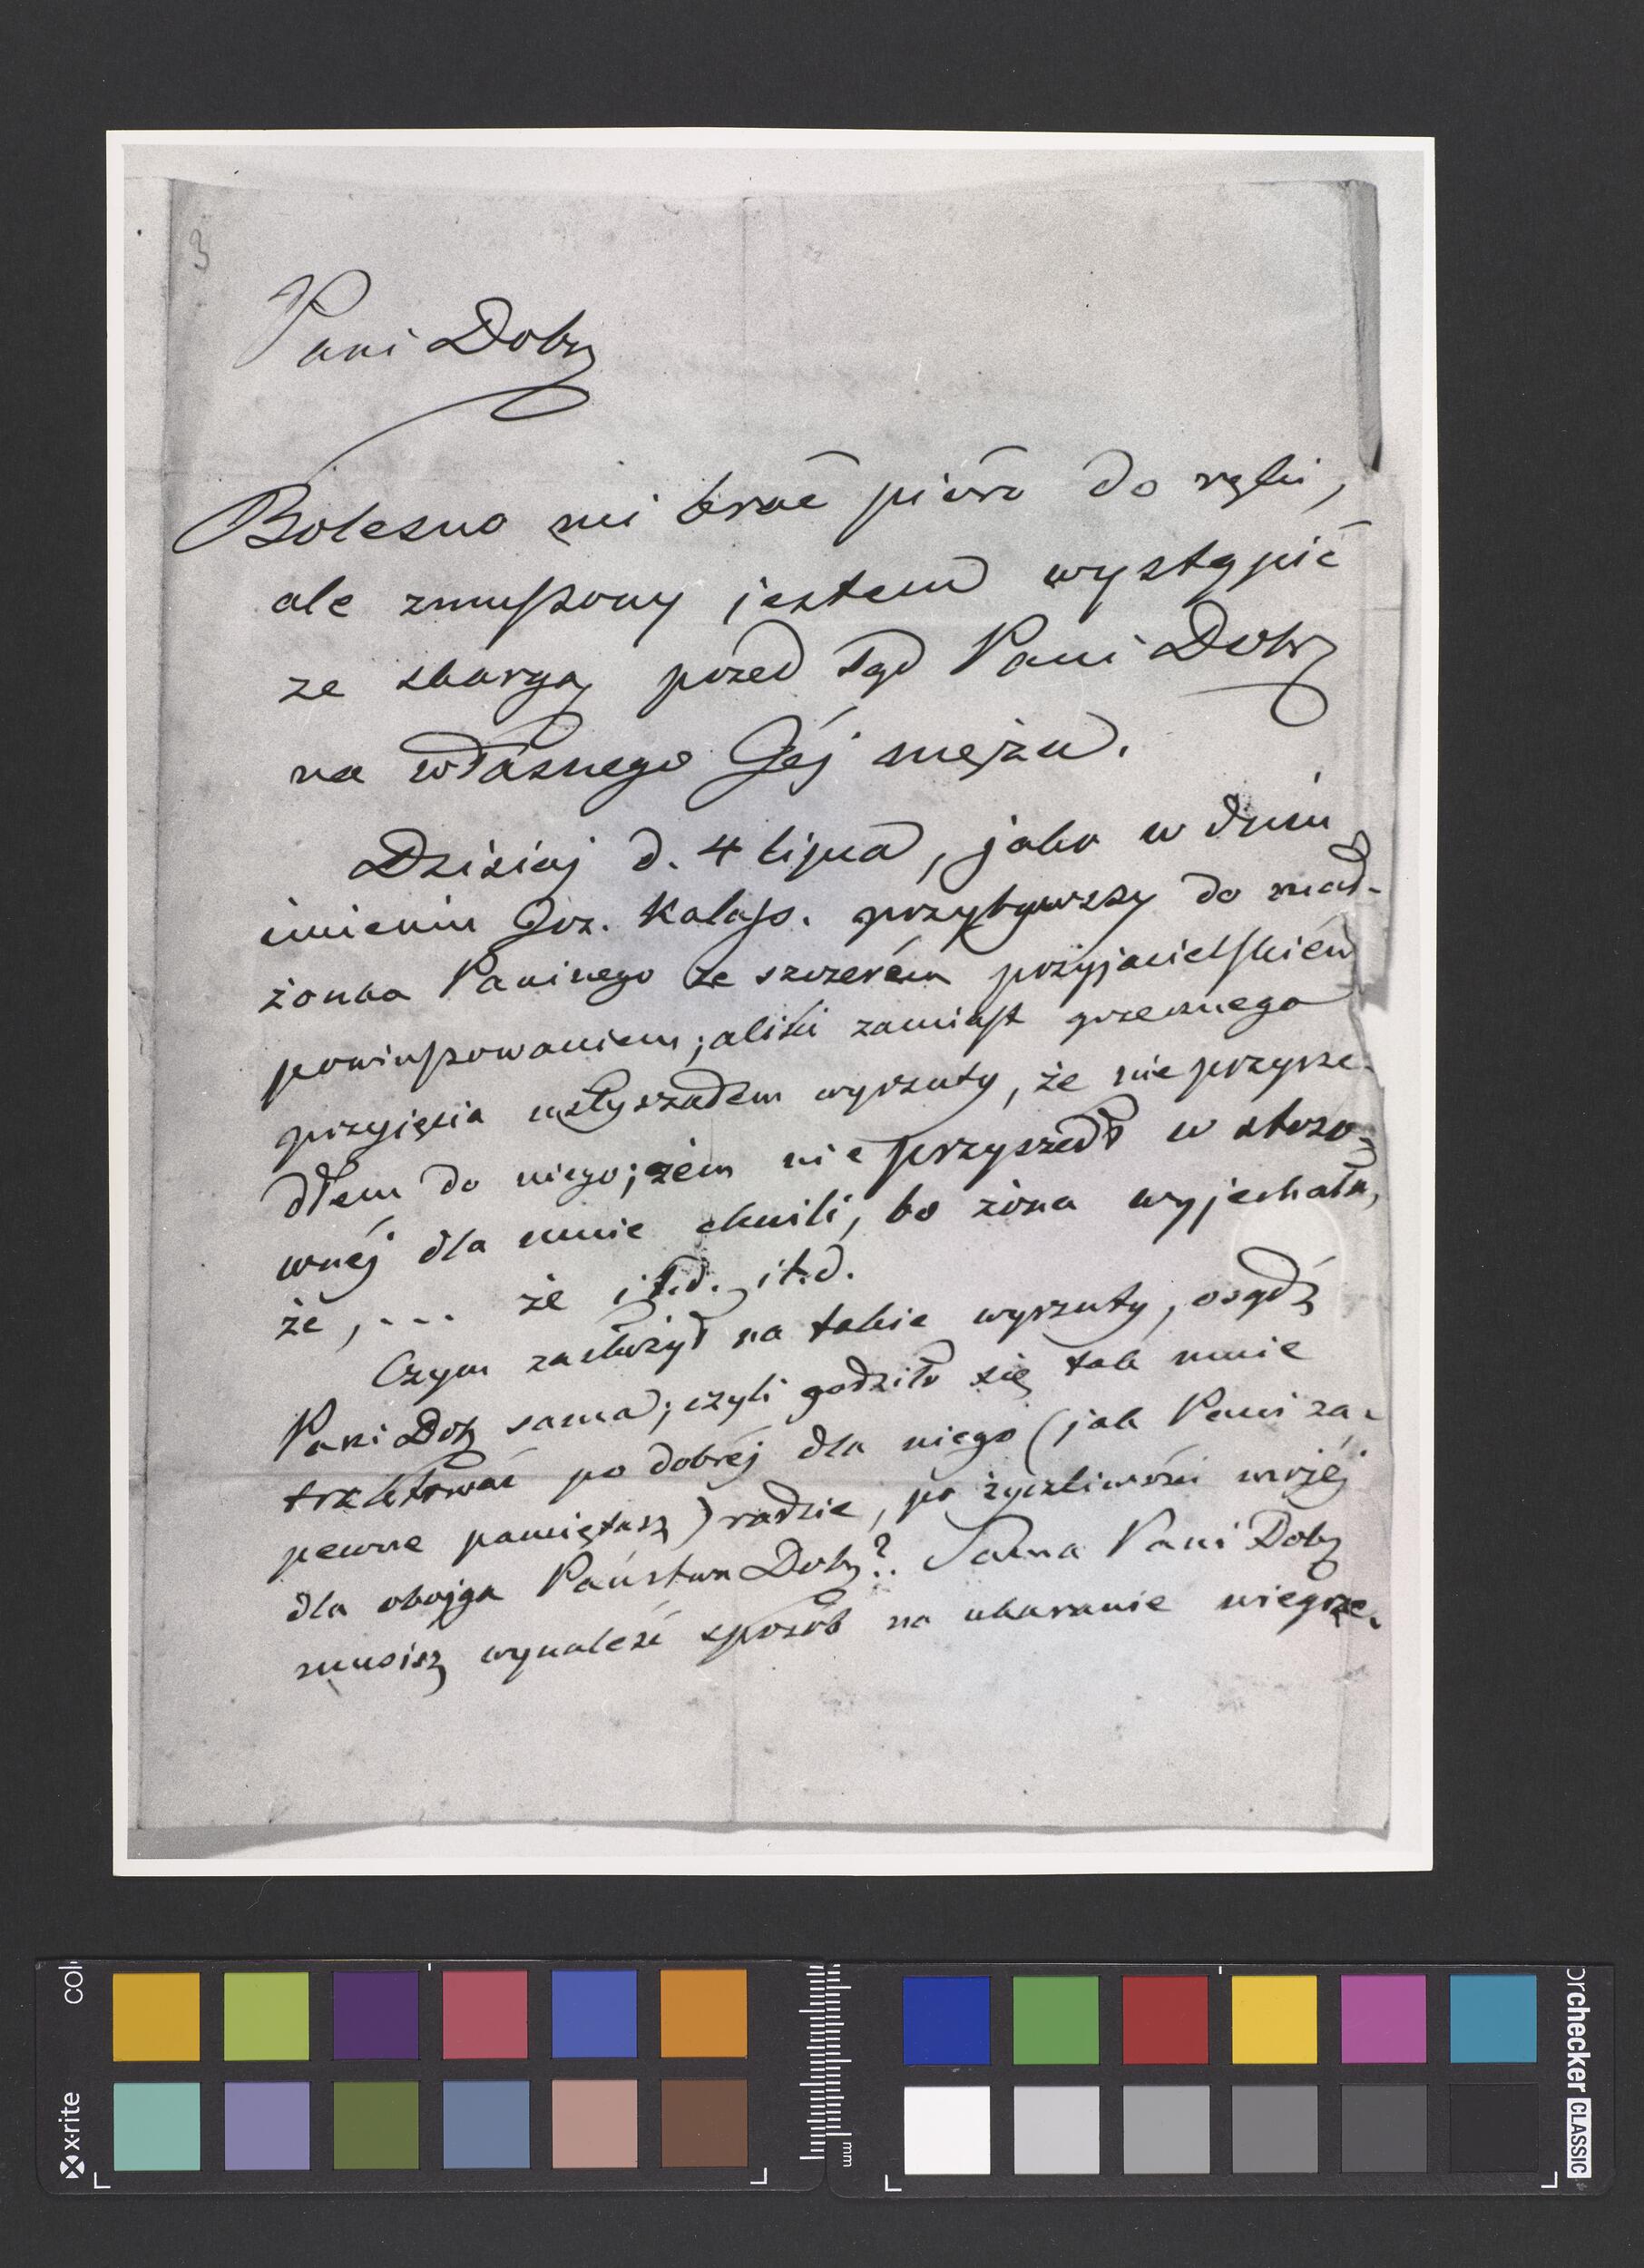 3
Pani Dobrz
Bolesno mi brać pióro do ręki,
ale zmuszony jestem wystąpić
ze skargą przed Sąd Pani Dobrz
na własnego Jéj męża.
Dzisiaj d. 4 lipca, jako w dniu
imienin Joz. Kalass. przybywszy do mał-
żonka Paninego ze szczerém przyjacielskiém
powinszowaniem; aliści zamiast grzecznego
przyjęcia usłyszałem wyrzuty, że nie przysze-
dłem do niego; żem nie przyszedł w stoso-
wnéj dla mnie chwili, bo żona wyjechała,
że, - - - że i t.d. i t.d.
Czym zasłużył na takie wyrzuty, osądź
Pani Dobz sama; czyli godziło się tak mnie
traktować po dobréj dla niego (jak Pani za-
pewne pamiętasz) radzie, po życzliwości mojéj
dla obojga Państwa Dobz? Sama Pani Dobz
musisz wynaleźć sposób na ukaranie niegrze-
x-rite
colo
mm
orchecker CLASSIC